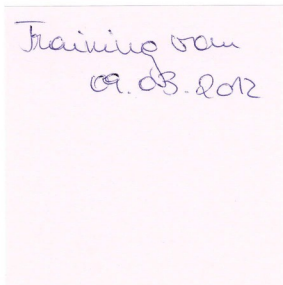 Training vom
09.03.2012